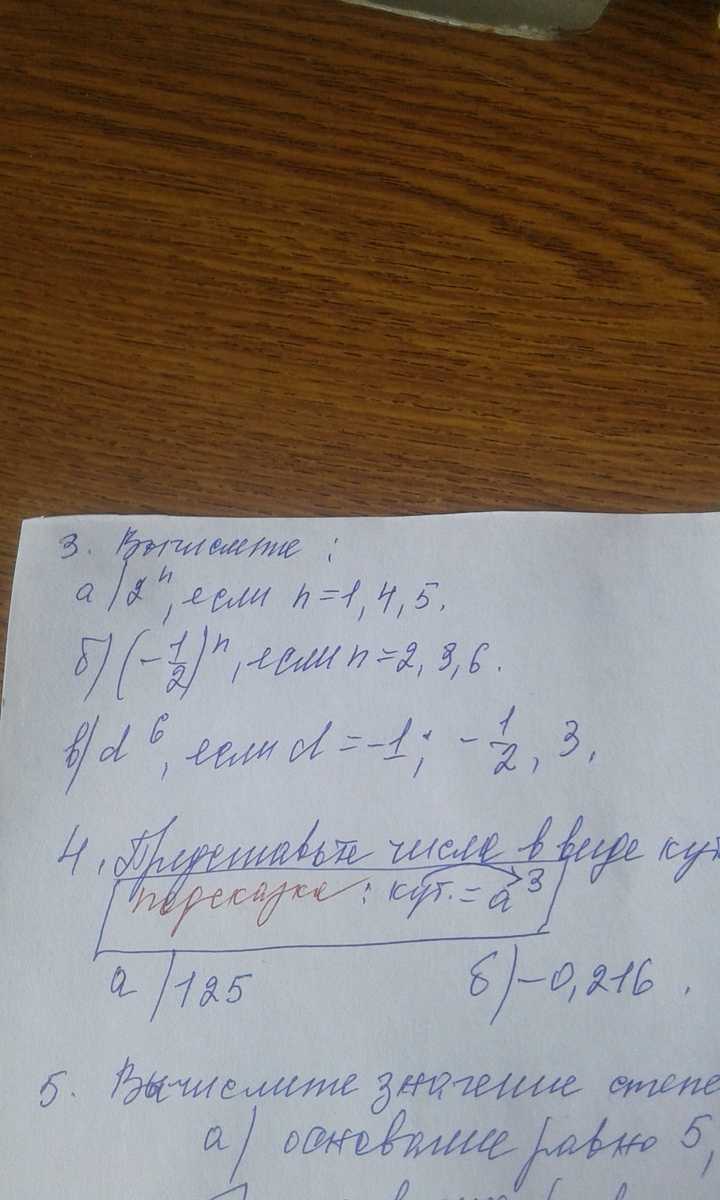 3. Вычислите :
а) 2ⁿ, если n=1, 4, 5.
б) (-1/2)ⁿ, если n=2, 3, 6.
в) d⁶, если d = -1; -1/2, 3.
4. Представьте числа в виде куб
подсказка : куб. = a³
а) 125 б) -0,216 .
5. Вычислите значение степе
а) основание равно 5,